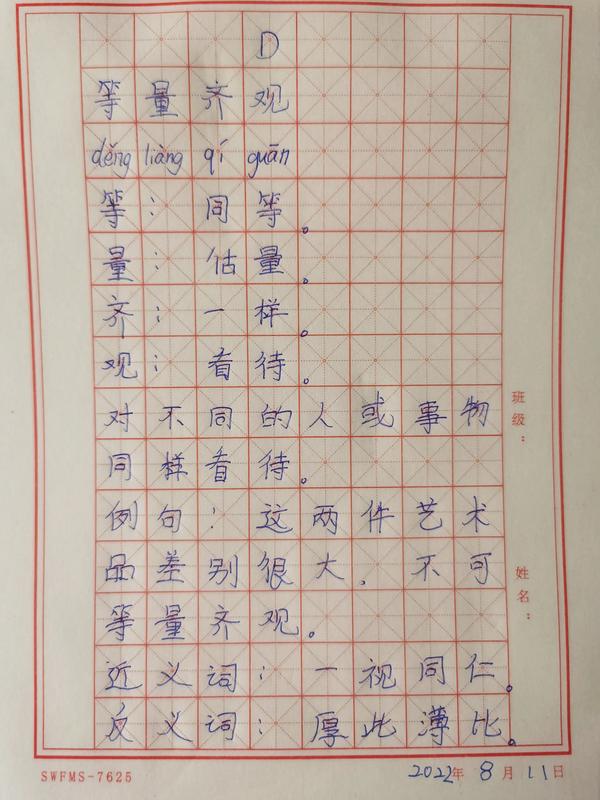 D
等量齐观
děng liàng qí guān
等：同等。
量：估量。
齐：一样。
观：看待。
对不同的人或事物
同样看待。
例句：这两件艺术
品差别很大，不可
等量齐观。
近义词：一视同仁。
反义词：厚此薄比。
班级：
姓名：
SWFMS-7625
2022年8月11日